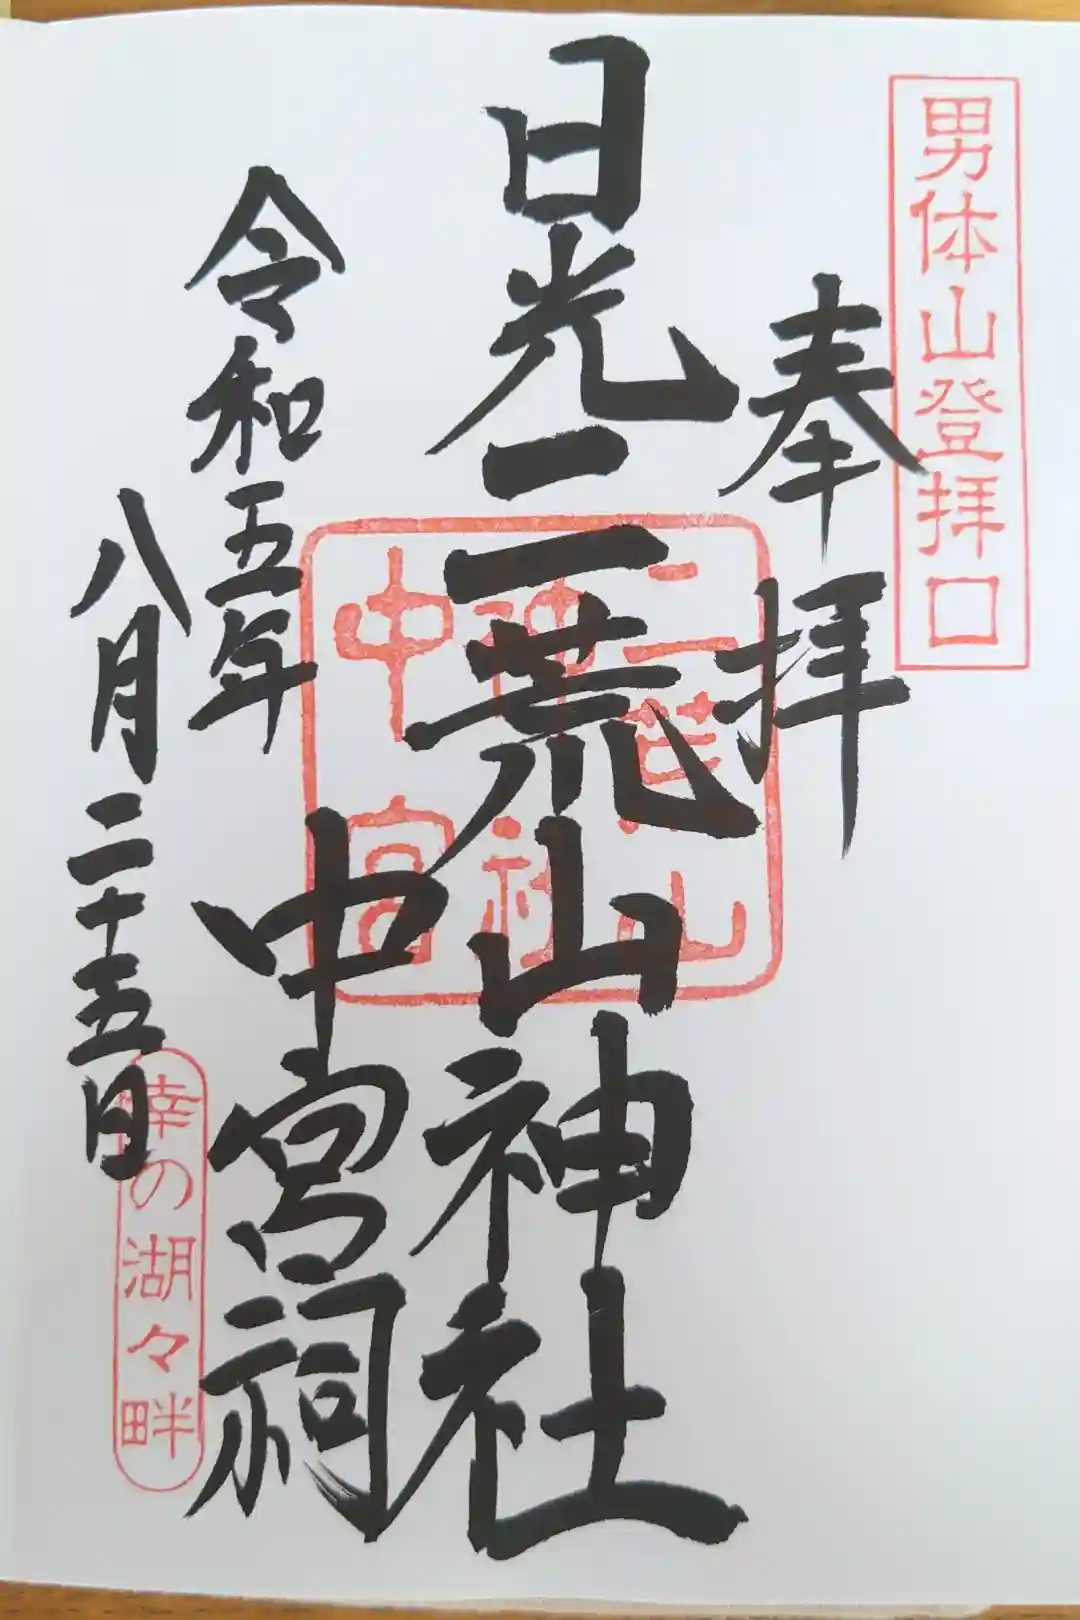 男体山登拝口
奉拝
日光二荒山神社
中宮祠
二荒山
神社
中宮
令和五年
八月二十五日
幸の湖々畔